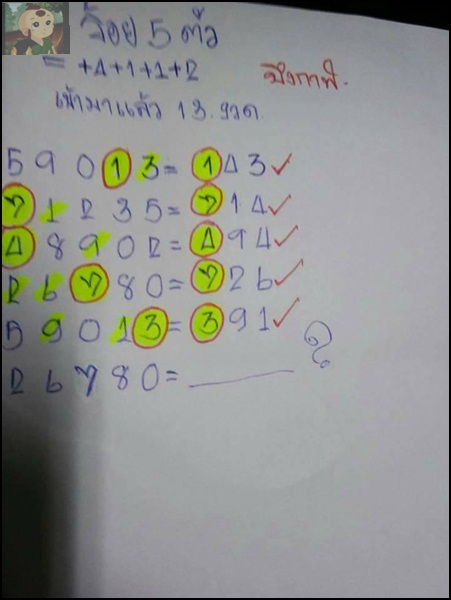 ร้อย 5 ตัว
= +4+1+1+2
เข้ามาแล้ว 13 งวด
59013=143✓
71235=714✓
48902=494✓
26780=726✓
59013=391✓
26780=